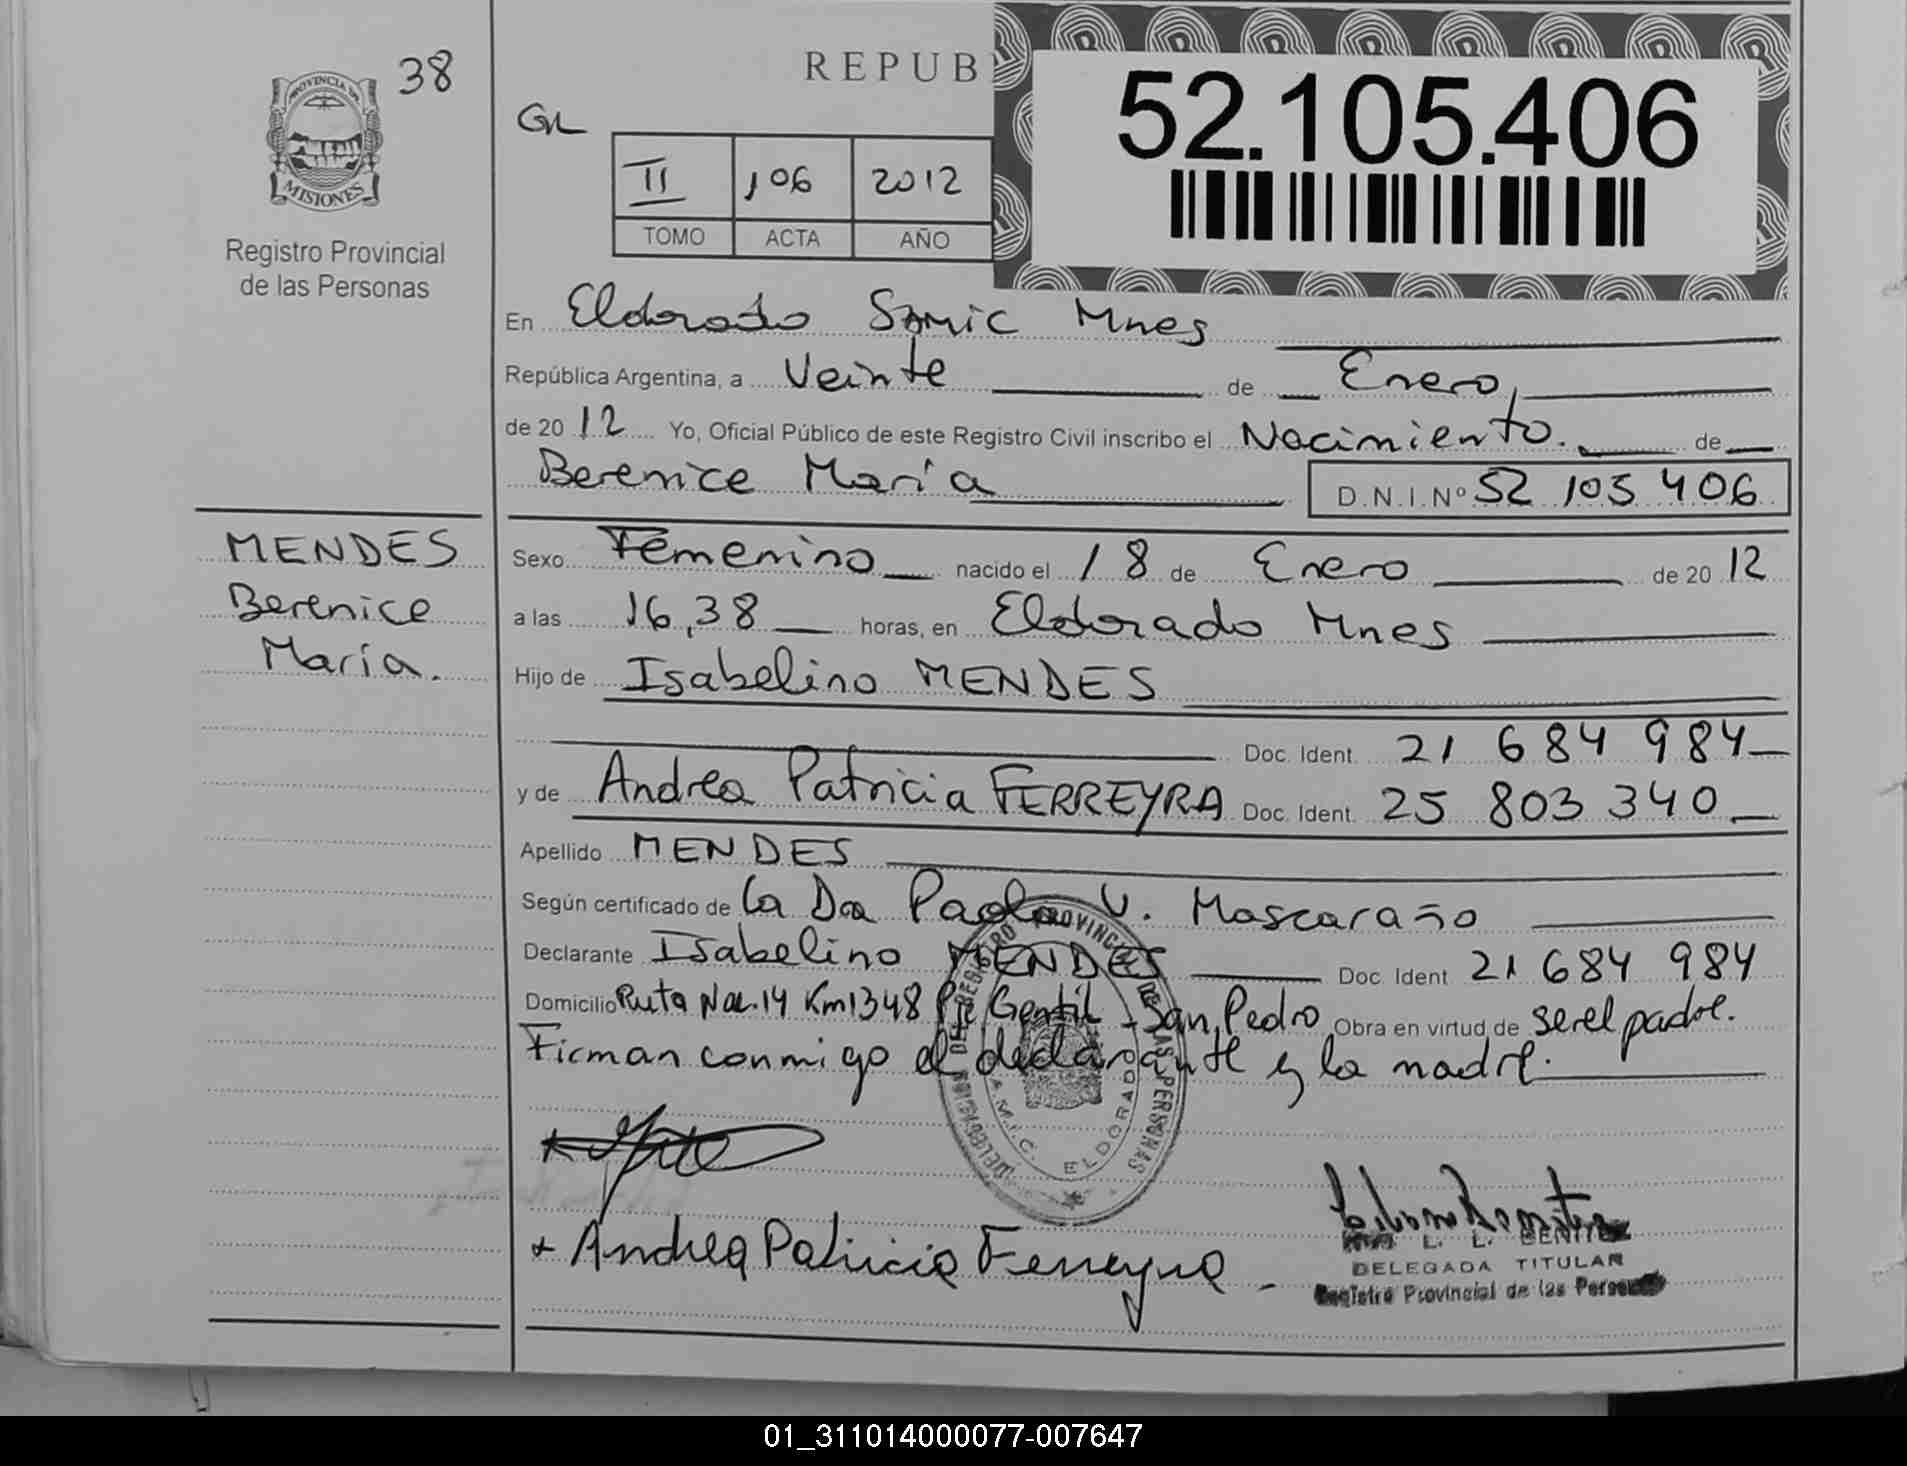 38
PROVINCIA DE
MISIONES
Registro Provincial
de las Personas
REPUB
GL
52.105.406
II 106 2012
TOMO ACTA AÑO
En Eldorado SAMIC Mnes
República Argentina, a Veinte de Enero,
de 2012 Yo, Oficial Público de este Registro Civil inscribo el Nacimiento. de
Berenice María D.N.I.Nº 52 105 406
MENDES
Berenice
María.
Sexo Femenino nacido el 18 de Enero de 2012
a las 16,38 horas, en Eldorado Mnes
Hijo de Isabelino MENDES
Doc. Ident. 21 684 984
y de Andrea Patricia FERREYRA Doc. Ident. 25 803 340
Apellido MENDES
Según certificado de la Dra Paola V. Mascaraño
Declarante Isabelino MENDES Doc Ident 21 684 984
Domicilio Ruta Nac.14 Km1348 Pje Gentil - San Pedro Obra en virtud de ser el padre.
Firman conmigo el declarante y la madre.
DELEGACION DEL REGISTRO PROVINCIAL DE LAS PERSONAS
S.A.M.I.C. ELDORADO
+ Andrea Patricia Ferreyra -
L. L. BENITEZ
DELEGADA TITULAR
Registro Provincial de las Personas
01_311014000077-007647